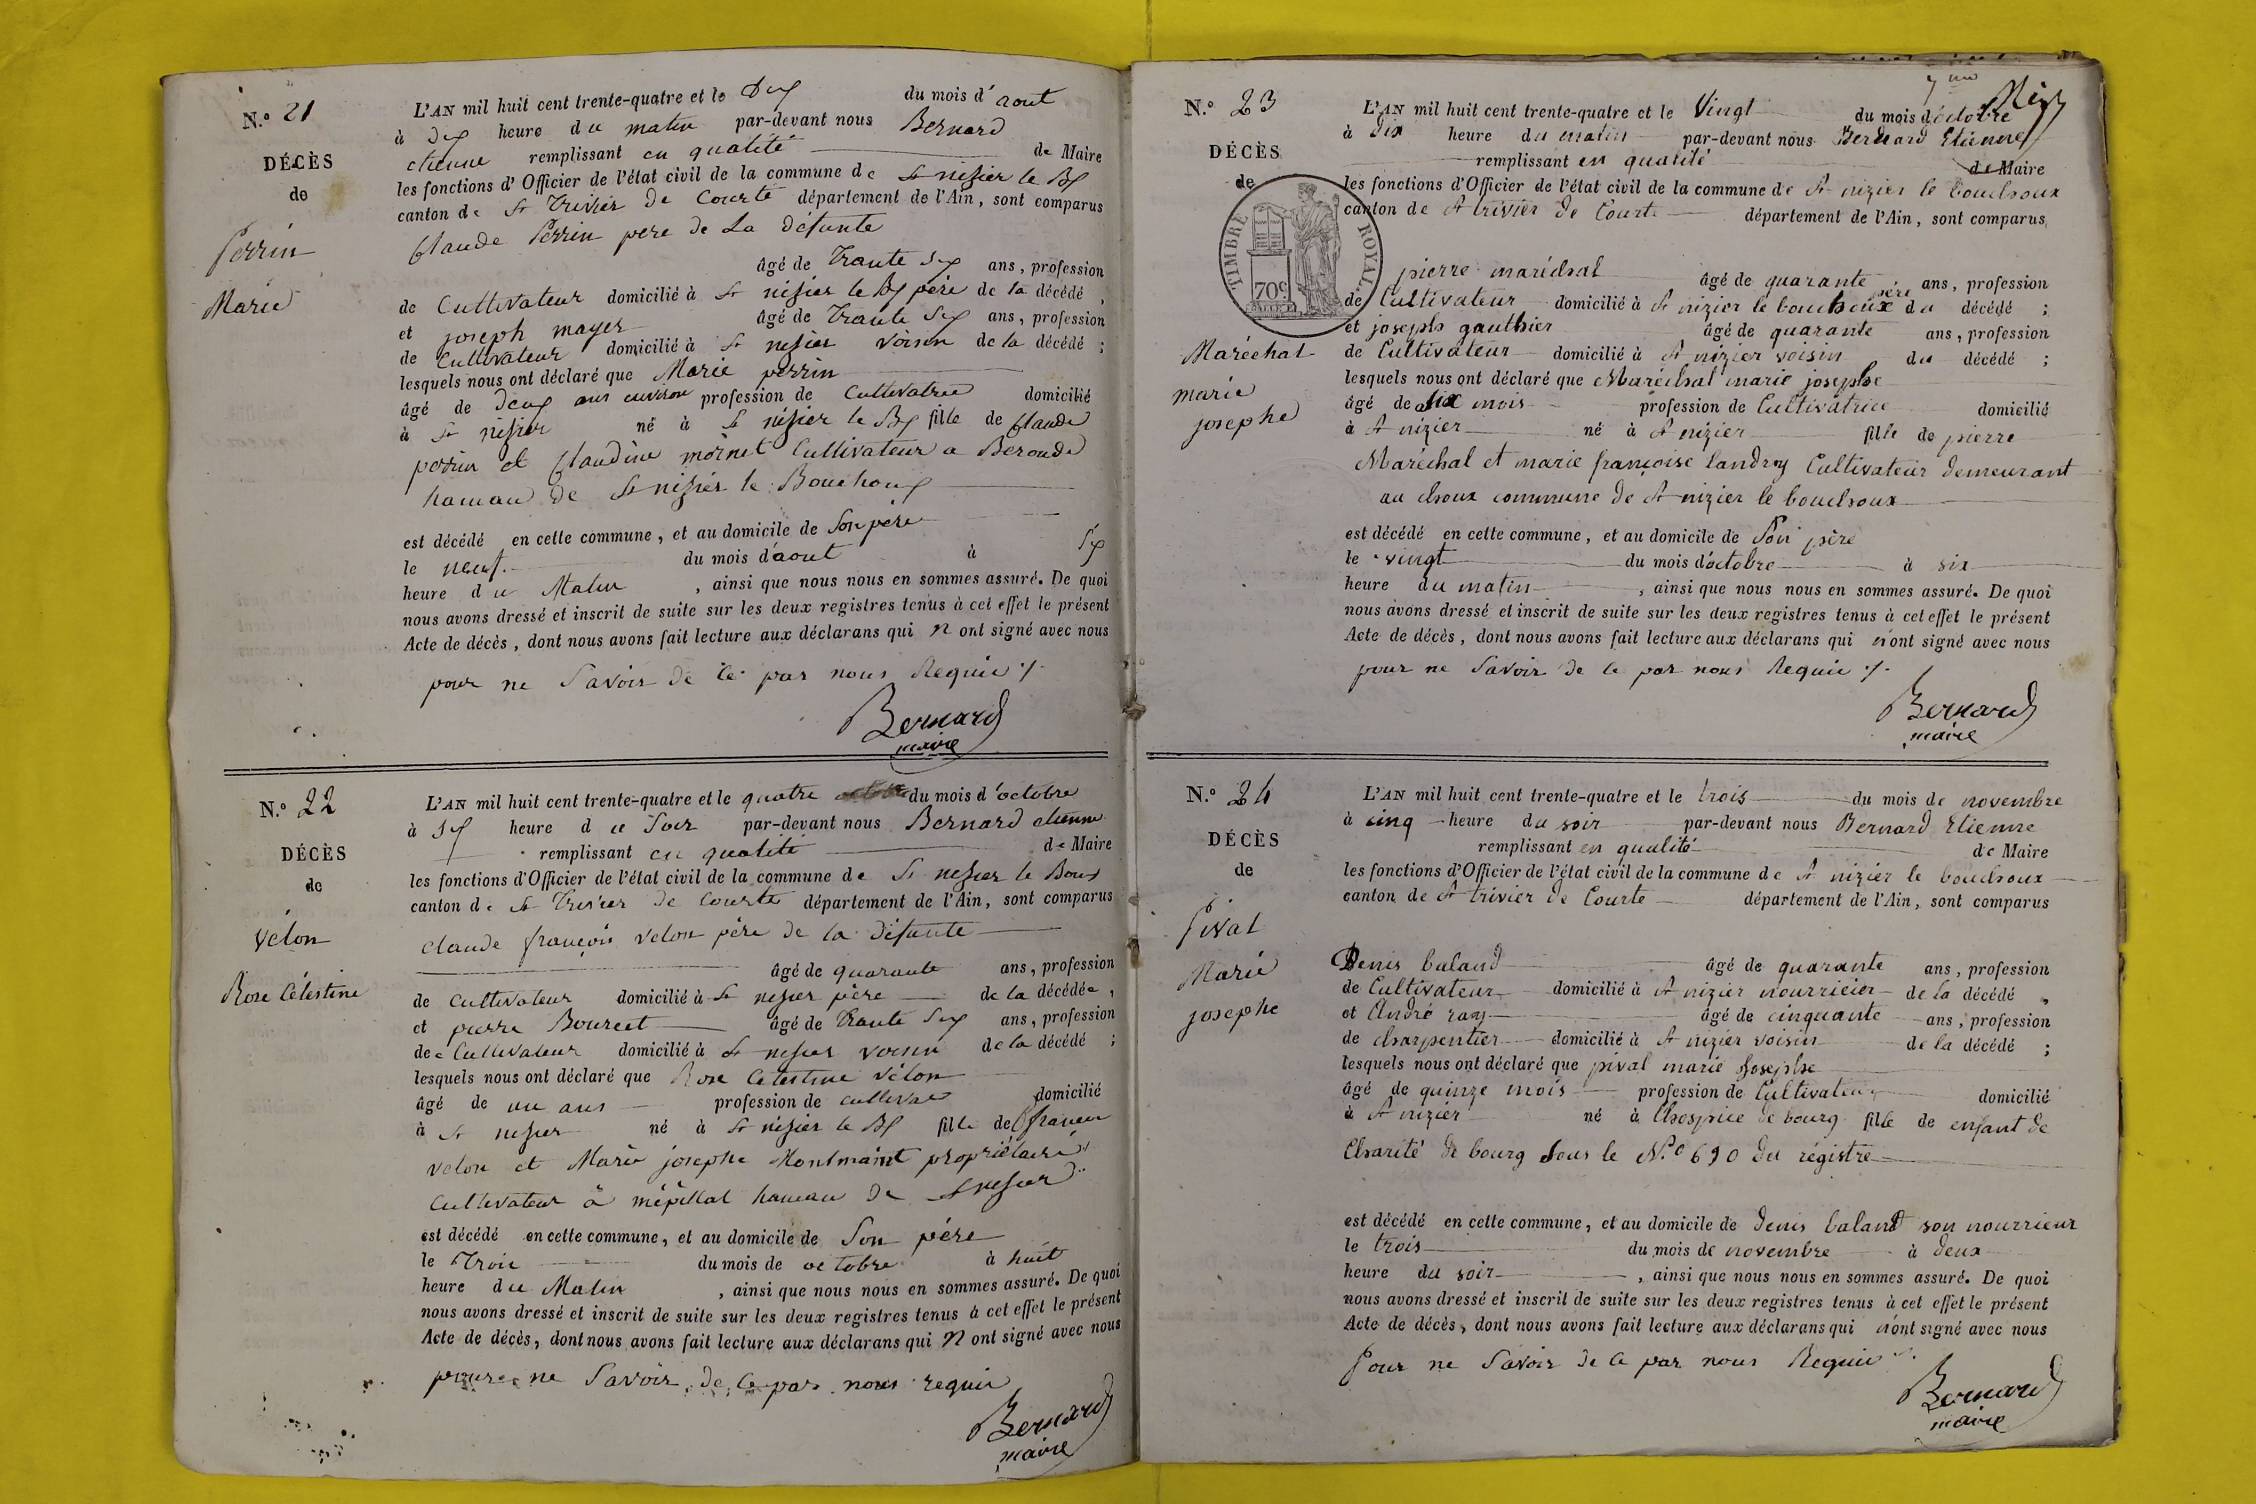 N.° 21
DÉCÈS
de
Perrin
Marie
L'AN mil huit cent trente-quatre et le dix du mois d'aout
à dix heure du matin par-devant nous Bernard
etienne remplissant en qualité de Maire
les fonctions d'Officier de l'état civil de la commune de St nisier le Bx
canton de St Trivier de Courte département de l'Ain, sont comparus
Claude Perrin pere de La défunte
âgé de trante six ans, profession
de Cultivateur domicilié à St nisier le Bx père de la décédé,
et joseph mayer âgé de trante six ans, profession
de Cultivateur domicilié à St nisier voisin de la décédé ;
lesquels nous ont déclaré que Marie perrin
âgé de deux ans environ profession de Cultivatrice domicilié
à St nisier né à St nisier le Bx fille de Claude
perrin et Claudine mornet Cultivateur a Beronde
hameau de St nisier le Bouchoux
est décédé en cette commune, et au domicile de Son père
le neuf du mois d'aout à six
heure du Matin, ainsi que nous nous en sommes assuré. De quoi
nous avons dressé et inscrit de suite sur les deux registres tenus à cet effet le présent
Acte de décès, dont nous avons fait lecture aux déclarans qui n ont signé avec nous
pour ne Savoir de ce par nous Requie ./.
Bernard
maire
N.° 22
DÉCÈS
de
Vélon
Rose Célestine
L'AN mil huit cent trente-quatre et le quatre du mois d'octobre
à six heure du Soir par-devant nous Bernard etienne
remplissant en qualité de Maire
les fonctions d'Officier de l'état civil de la commune de St nisier le Boux
canton de St Trivier de Courte département de l'Ain, sont comparus
Claude françois velon père de la défunte
âgé de quarante ans, profession
de Cultivateur domicilié à St nisier père de la décédée,
et pierre Bourcet âgé de trante six ans, profession
de Cultivateur domicilié à St nisier voisin de la décédé ;
lesquels nous ont déclaré que Rose Celestine Vélon
âgé de un ans profession de cultivat domicilié
à St nisier né à St nisier le Bx fille de
velon et Marie josephe Montmaint propriétaire
Cultivateur à mépillat hameau de St nisier
est décédé en cette commune, et au domicile de Son père
le Trois du mois de octobre à huit
heure du Matin, ainsi que nous nous en sommes assuré. De quoi
nous avons dressé et inscrit de suite sur les deux registres tenus à cet effet le présent
Acte de décès, dont nous avons fait lecture aux déclarans qui n ont signé avec nous
pour ne Savoir de ce par nous requie
Bernard
maire
7me
N.° 23
DÉCÈS
de
TIMBRE ROYAL
70c
Maréchal
marie
josephe
L'AN mil huit cent trente-quatre et le Vingt du mois d'octobre
à dix heure du matin par-devant nous Bernard Etienne
remplissant en qualité de Maire
les fonctions d'Officier de l'état civil de la commune de St nizier le bouchoux
canton de St trivier de Courte département de l'Ain, sont comparus
pierre maréchal âgé de quarante ans, profession
de Cultivateur domicilié à St nizier le bouchoux père du décédé ;
et joseph gauthier âgé de quarante ans, profession
de Cultivateur domicilié à St nizier voisin du décédé ;
lesquels nous ont déclaré que Maréchal marie josephe
âgé de six mois profession de Cultivatrice domicilié
à St nizier né à St nizier fille de pierre
Maréchal et marie françoise landroy Cultivateur demeurant
au choux commune de St nizier le bouchoux
est décédé en cette commune, et au domicile de Son père
le vingt du mois d'octobre à six
heure du matin, ainsi que nous nous en sommes assuré. De quoi
nous avons dressé et inscrit de suite sur les deux registres tenus à cet effet le présent
Acte de décès, dont nous avons fait lecture aux déclarans qui n'ont signé avec nous
pour ne Savoir de ce par nous Requie ./.
Bernard
maire
N.° 24
DÉCÈS
de
Pival
Marie
josephe
L'AN mil huit cent trente-quatre et le trois du mois de novembre
à cinq heure du soir par-devant nous Bernard Etienne
remplissant en qualité de Maire
les fonctions d'Officier de l'état civil de la commune de St nizier le bouchoux
canton de St trivier de Courte département de l'Ain, sont comparus
Denis baland âgé de quarante ans, profession
de Cultivateur domicilié à St nizier nourricier de la décédé,
et André ray âgé de cinquante ans, profession
de charpentier domicilié à St nizier voisin de la décédé ;
lesquels nous ont déclaré que pival marie Josephe
âgé de quinze mois profession de Cultivateur domicilié
à St nizier né à l'hospice de bourg fille de enfant de
Charité de bourg sous le N.° 690 du régistre
est décédé en cette commune, et au domicile de denis baland son nourrieur
le trois du mois de novembre à deux
heure du soir, ainsi que nous nous en sommes assuré. De quoi
nous avons dressé et inscrit de suite sur les deux registres tenus à cet effet le présent
Acte de décès, dont nous avons fait lecture aux déclarans qui n'ont signé avec nous
Pour ne Savoir de ce par nous Requie
Bernard
maire